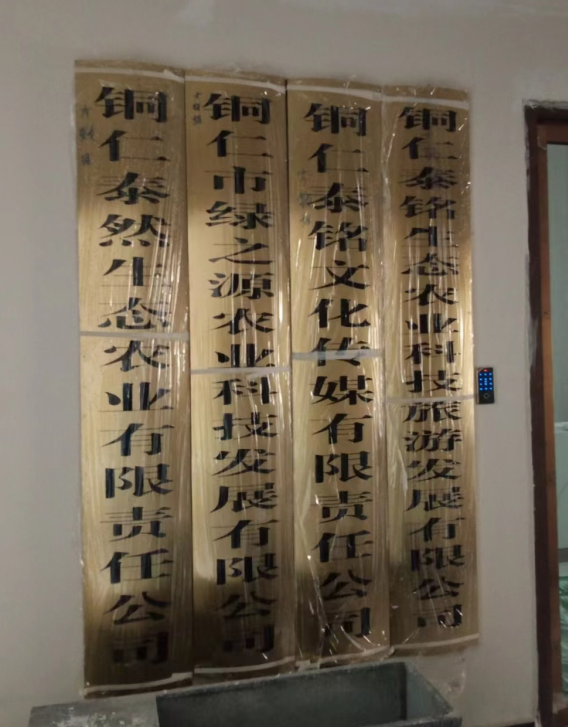 铜仁泰然生态农业有限责任公司
铜仁市绿之源农业科技发展有限公司
铜仁泰铭文化传媒有限责任公司
铜仁泰铭生态农业科技旅游发展有限公司